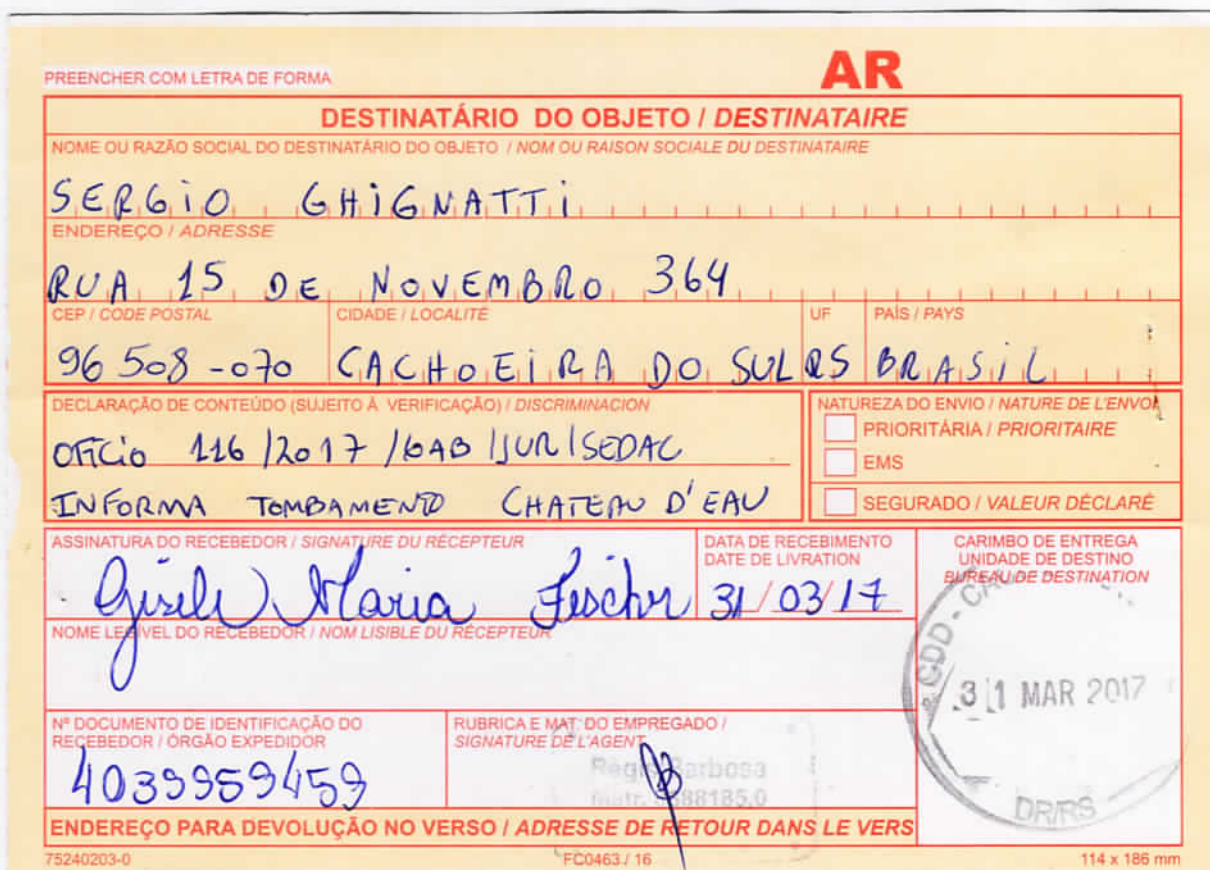 PREENCHER COM LETRA DE FORMA
AR
DESTINATÁRIO DO OBJETO / DESTINATAIRE
NOME OU RAZÃO SOCIAL DO DESTINATÁRIO DO OBJETO / NOM OU RAISON SOCIALE DU DESTINATAIRE
SERGIO GHIGNATTI
ENDEREÇO / ADRESSE
RUA 15 DE NOVEMBRO 364
CEP / CODE POSTAL CIDADE / LOCALITÉ UF PAÍS / PAYS
96508-070 CACHOEIRA DO SUL RS BRASIL
DECLARAÇÃO DE CONTEÚDO (SUJEITO À VERIFICAÇÃO) / DISCRIMINACION
OFICIO 116/2017/GAB/JUR/SEDAC
INFORMA TOMBAMENTO CHATEAU D'EAU
NATUREZA DO ENVIO / NATURE DE L'ENVOI
PRIORITÁRIA / PRIORITAIRE
EMS
SEGURADO / VALEUR DÉCLARÉ
ASSINATURA DO RECEBEDOR / SIGNATURE DU RÉCEPTEUR
Gisele Maria Fischer
DATA DE RECEBIMENTO
DATE DE LIVRATION
31/03/17
CARIMBO DE ENTREGA
UNIDADE DE DESTINO
BUREAU DE DESTINATION
CDD
31 MAR 2017
DR/RS
NOME LEGÍVEL DO RECEBEDOR / NOM LISIBLE DU RÉCEPTEUR
Nº DOCUMENTO DE IDENTIFICAÇÃO DO
RECEBEDOR / ÓRGÃO EXPEDIDOR
4039959459
RUBRICA E MAT. DO EMPREGADO /
SIGNATURE DE L'AGENT
Barbosa
ENDEREÇO PARA DEVOLUÇÃO NO VERSO / ADRESSE DE RETOUR DANS LE VERS
75240203-0 FC0463 / 16 114 x 186 mm